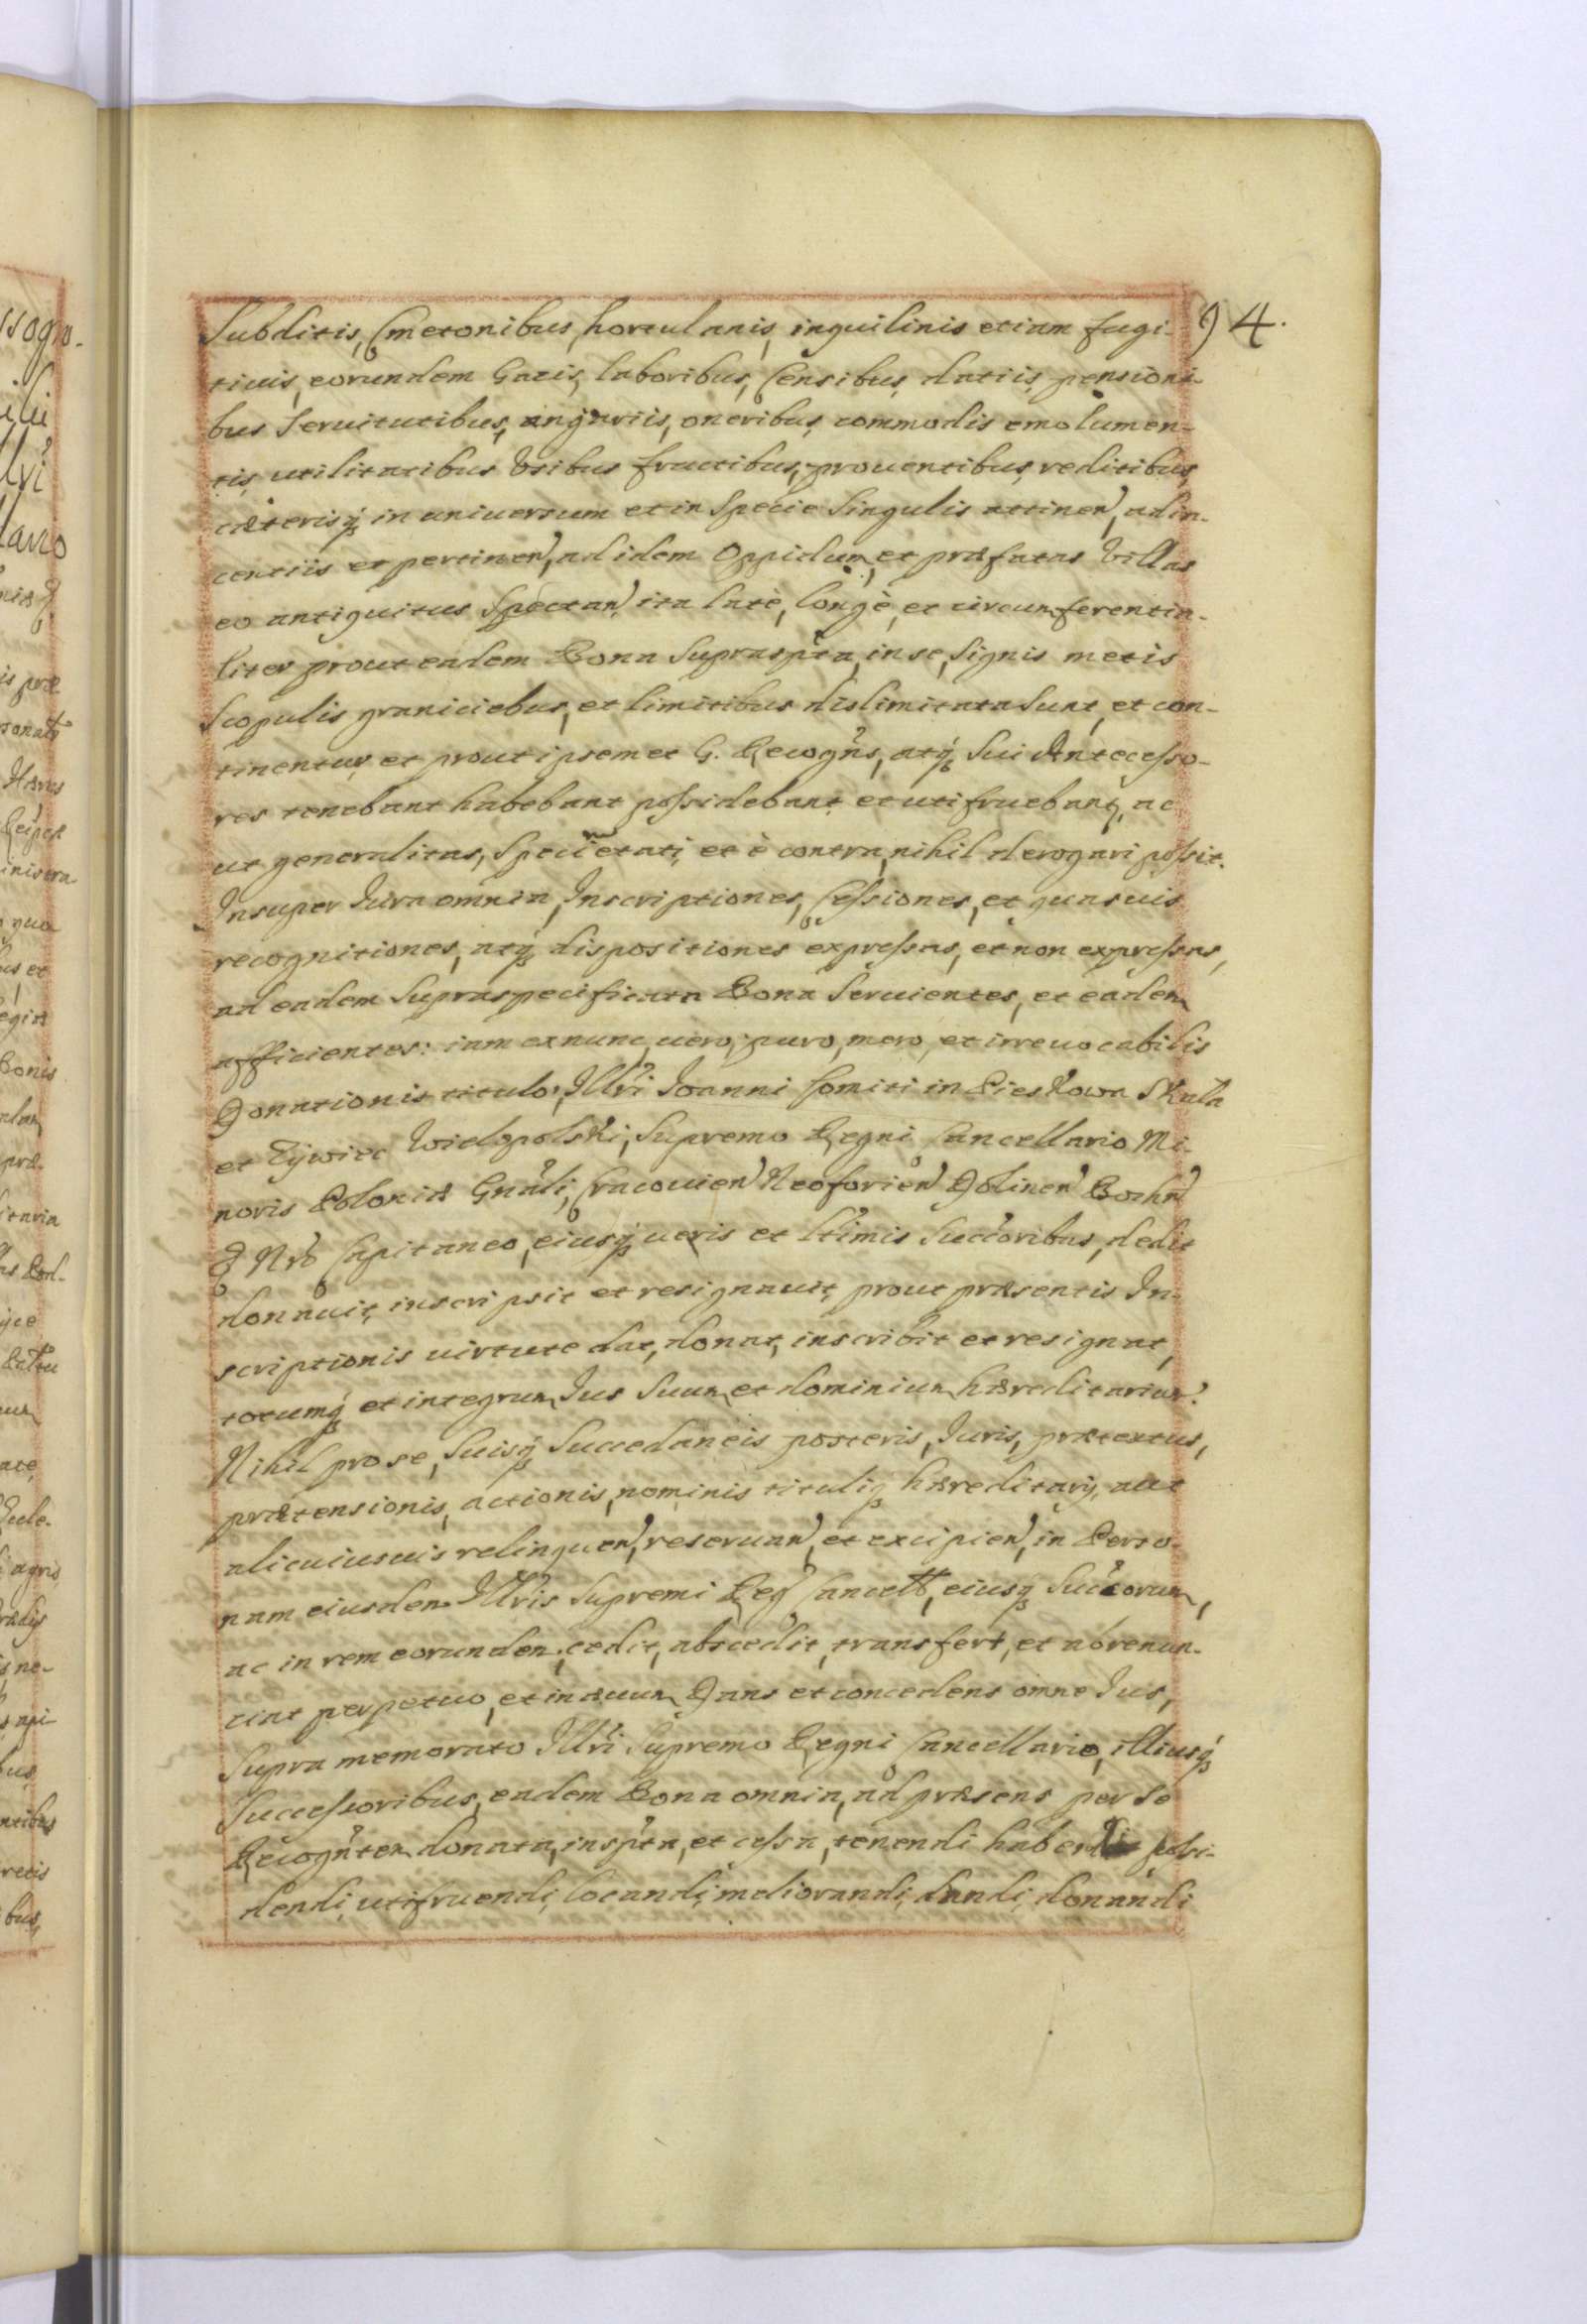 94.
Subditis, Cmetonibus, hortulanis, inquilinis etiam fugi-
tiuis, eorundem Gazis, laboribus, Censibus, datiis, pensioni-
bus Seruitutibus, angariis, oneribus, commodis emolumen-
tis, utilitatibus Vsibus fructibus, prouentibus, reditibus,
cæterisq; in uniuersum et in Specie Singulis attinen, adia-
centiis et pertinen, ad idem Oppidum, et præfatas Villas
eo antiquitus Spectan, ita latè, longè, et circumferentia-
liter prout eadem Bona Supraspta, in se, Signis metis
Scopulis graniciebus, et limitibus dislimitata Sunt, et con-
tinentur, et prout ipsemet G. Recogns, atq; Sui Antecesso-
res tenebant habebant possidebant, et utifruebant, ac
ut generalitas, Specietati, et è contra, nihil derogari possit.
Insuper Iura omnia, Inscriptiones, Cessiones, et quasuis
recognitiones, atq; dispositiones expressas, et non expressas,
ad eadem Supraspecificata Bona Seruientes, et eadem
afficientes: iam ex nunc, uero, puro, mero, et irreuocabilis
Donationis titulo, Illri Ioanni Comiti in Pieskowa Skała
et Zÿwiec Wielopolski, Supremo Regni Cancellario Mi-
noris Poloniæ Gnali, Cracouien Neoforien Dolinen Bochn
Capitaneo, eiusq; ueris et ltimis Succoribus, dedit
donauit, inscripsit et resignauit, prout præsentis In-
scriptionis uirtute dat, donat, inscribit et resignat,
totumq; et integrum Ius Suum et dominium hæreditarium.
Nihil pro se, Suisq; Succedaneis posteris, Iuris, prætextus,
prætensionis, actionis, nominis tituliq; hæreditarÿ, aut
alicuiusuis relinquen, reseruan, et excipien, in Perso-
nam eiusdem Illris Supremi Reg Cancell, eiusq; Succorum,
ac in rem eorundem, cedit, abscedit, transfert, et abrenun-
ciat perpetuo, et in æuum Dans et concedens omne Ius,
Supra memorato Illri Supremo Regni Cancellario, illiusq;
Successoribus, eadem Bona omnia, ad præsens per Se
Recognten donata, inspta, et cessa, tenendi habendi possi-
dendi, utifruendi, locandi, meliorandi, dandi, donandi